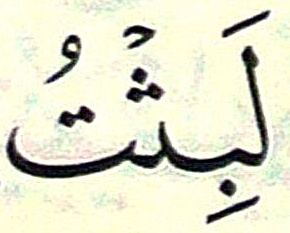 لَبِثْتُ